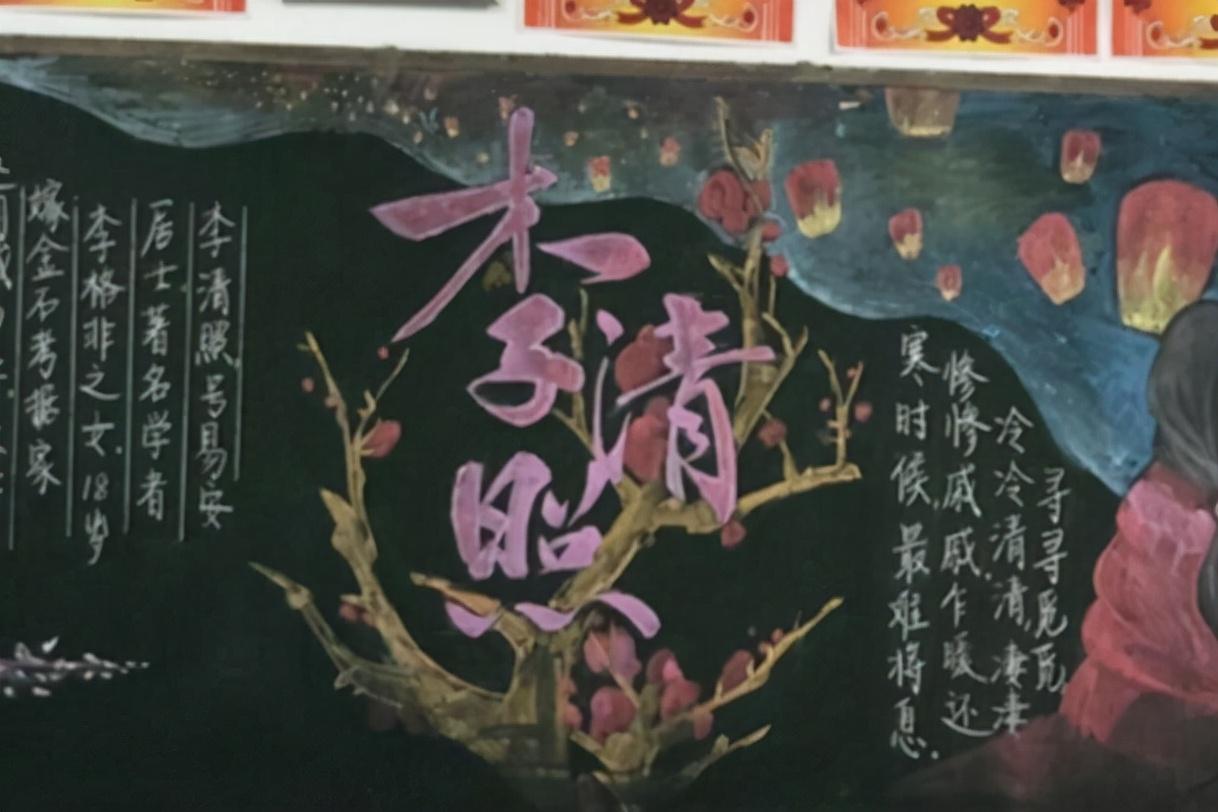 李清照
寻寻觅觅
冷冷清清,凄凄
惨惨戚戚.乍暖还
寒、时候,最难将息.
李清照,号易安
居士著名学者
李格非之女.18岁
嫁金石考据家